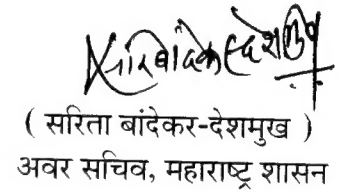 ( सरिता बांदेकर-देशमुख )
अवर सचिव, महाराष्ट्र शासन